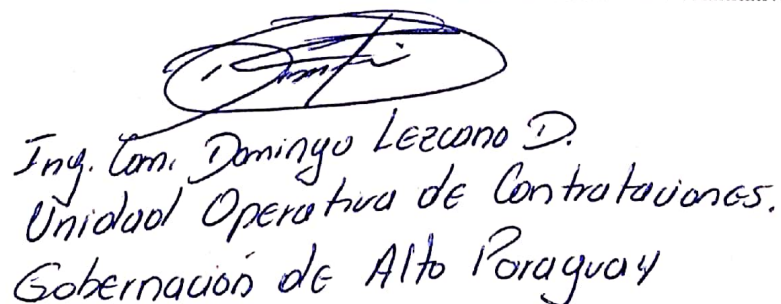 Ing. Com. Domingo Lezcano D.
Unidad Operativa de Contrataciones.
Gobernación de Alto Paraguay